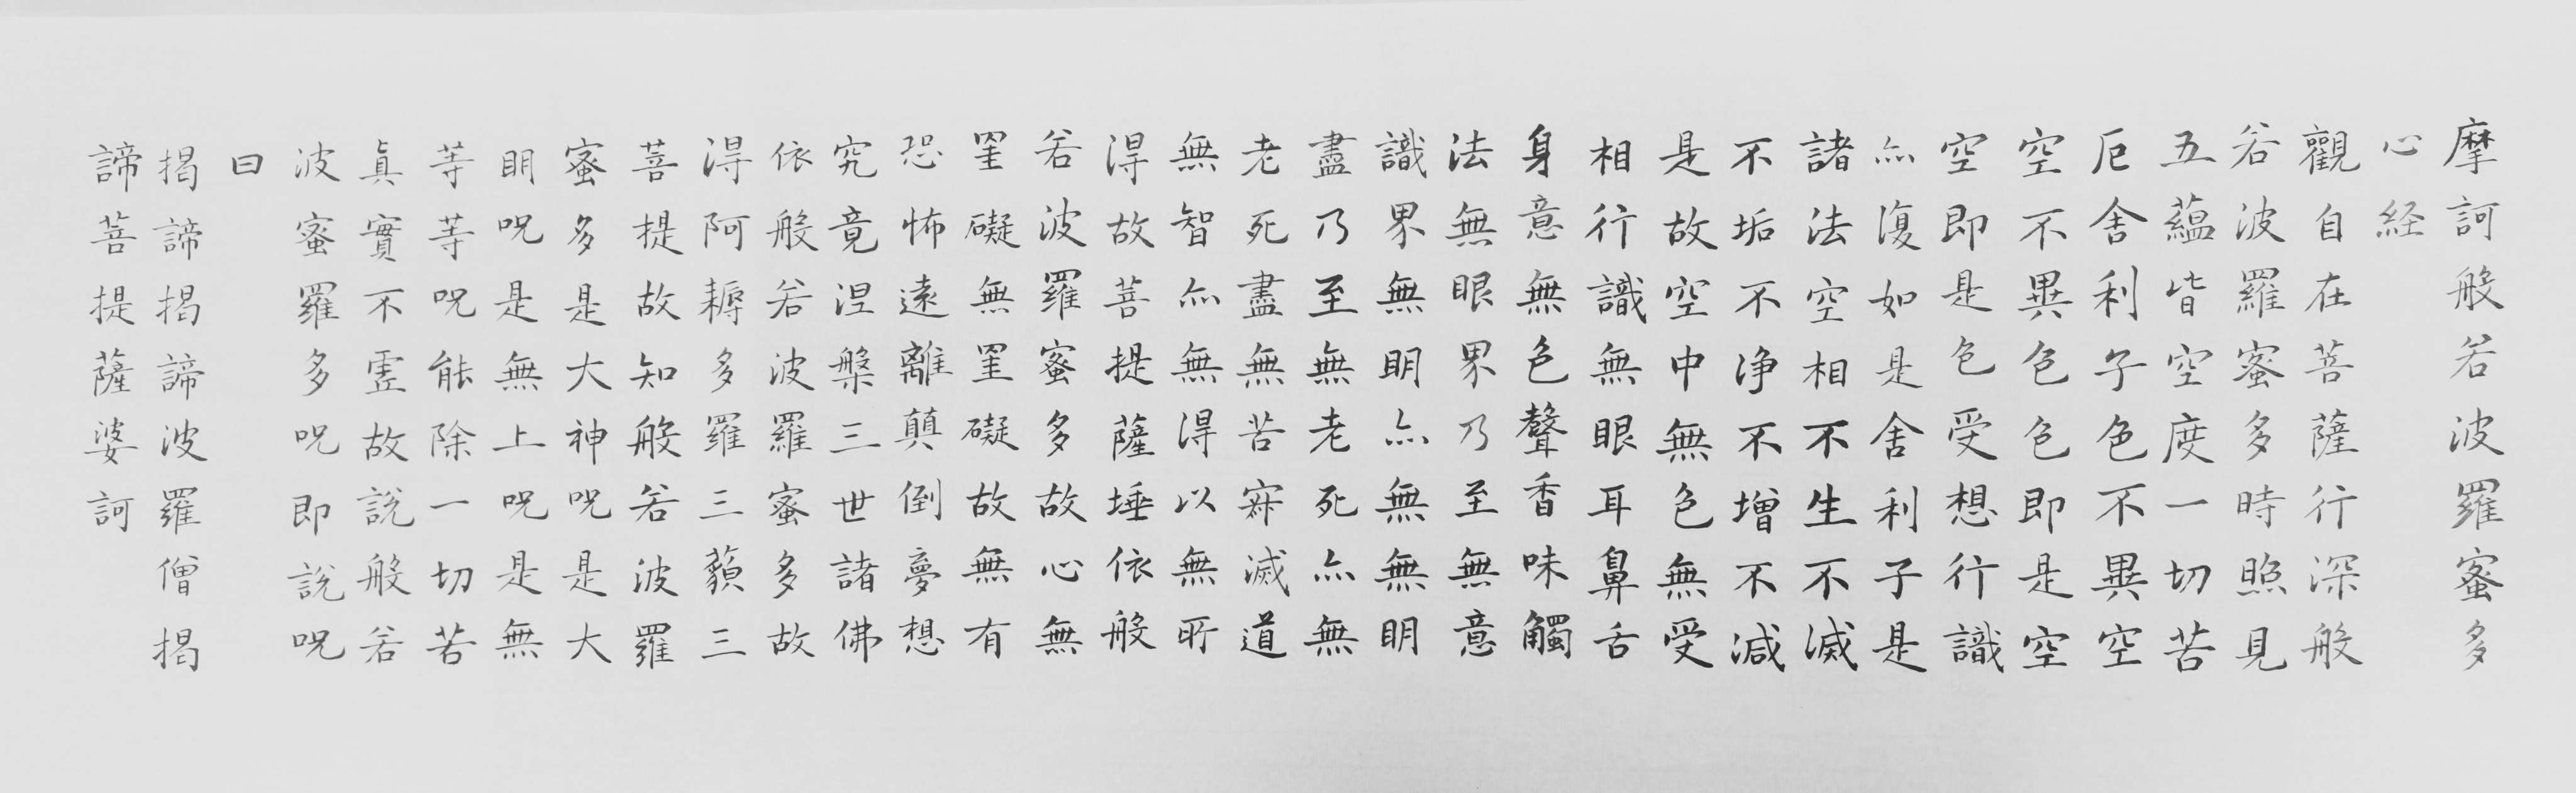 摩訶般若波羅蜜多
心経
觀自在菩薩行深般
若波羅蜜多時照見
五蘊皆空度一切苦
厄舍利子色不異空
空不異色色即是空
空即是色受想行識
亦復如是舍利子是
諸法空相不生不滅
不垢不净不增不減
是故空中無色無受
相行識無眼耳鼻舌
身意無色聲香味觸
法無眼界乃至無意
識界無明亦無無明
盡乃至無老死亦無
老死盡無苦寂滅道
無智亦無得以無所
得故菩提薩埵依般
若波羅蜜多故心無
罣礙無罣礙故無有
恐怖遠離顛倒夢想
究竟涅槃三世諸佛
依般若波羅蜜多故
得阿耨多羅三藐三
菩提故知般若波羅
蜜多是大神呪是大
明呪是無上呪是無
等等呪能除一切苦
真實不虛故說般若
波蜜羅多呪即說呪
曰
揭諦揭諦波羅僧揭
諦菩提薩婆訶